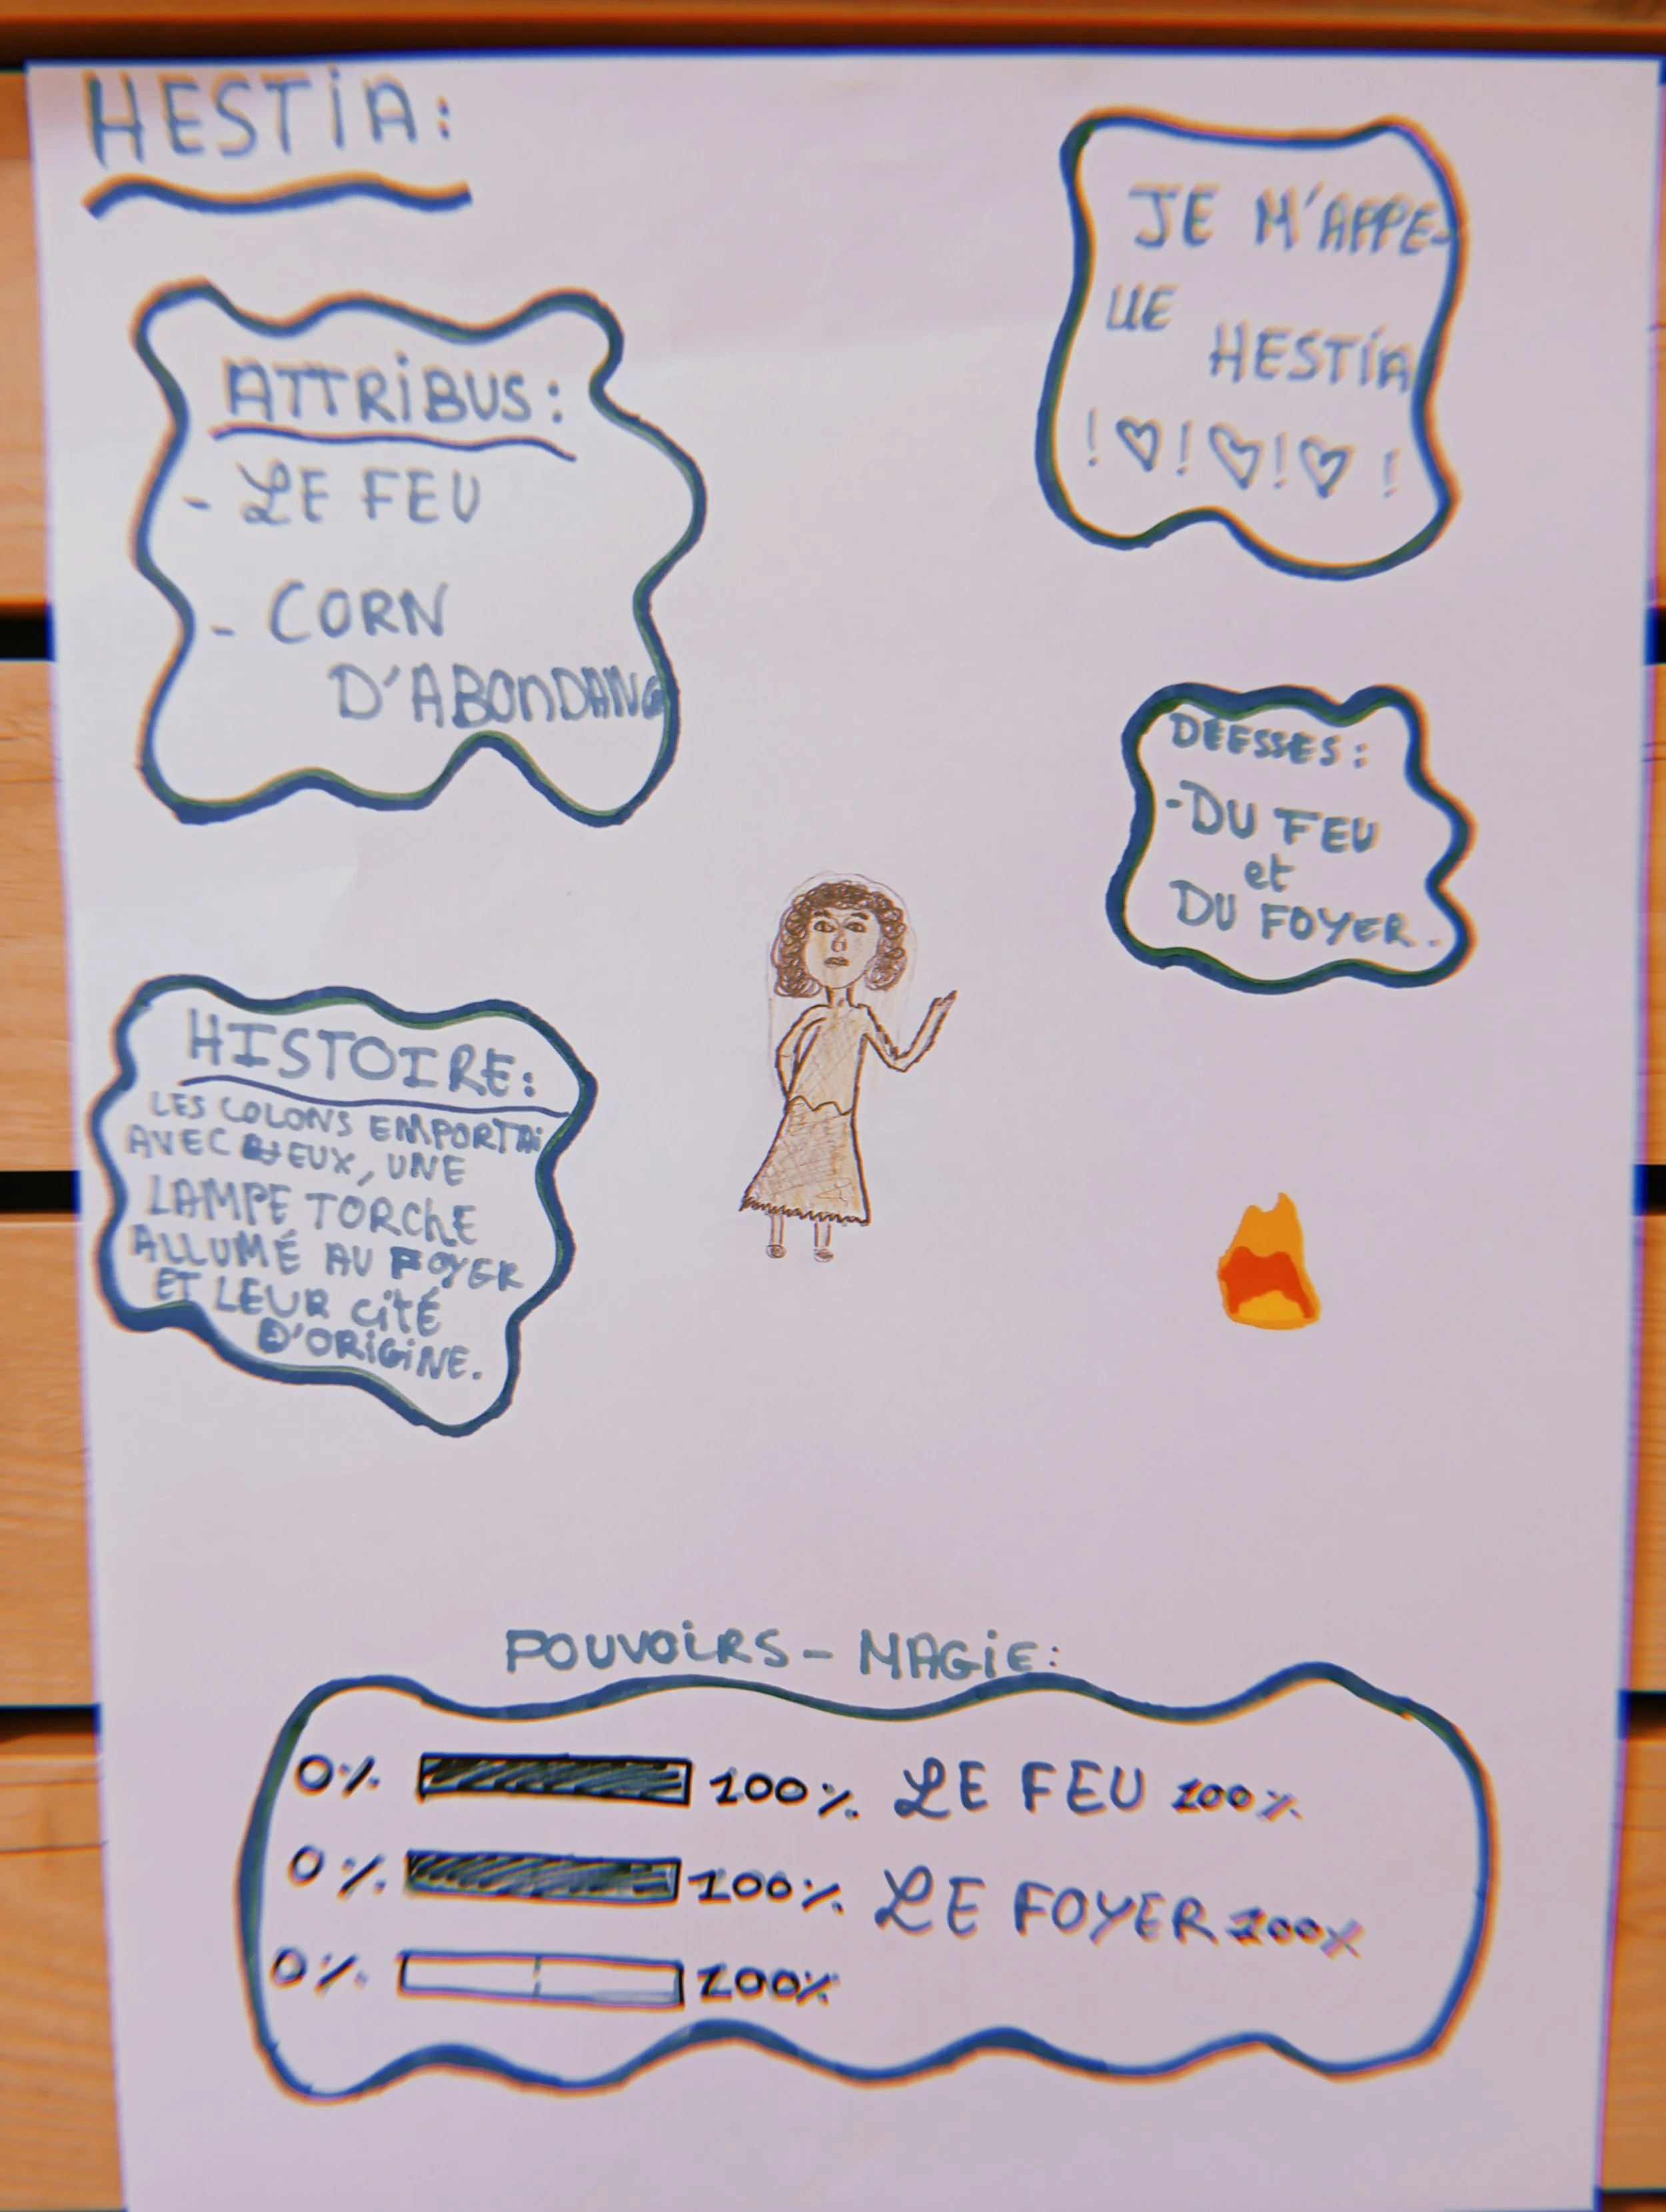 HESTiA:
JE M'APPE-
llE
HESTiA
!♡!♡!♡!
ATTRiBUS:
- LE FEU
- CORN
D'ABONDANC
DEESSES:
-DU FEU
et
DU FOYER.
HISTOIRE:
LES COLONS EMPORTAi
AVEC EUX, UNE
LAMPE TORChE
ALLUMÉ AU FOYER
ET LEUR CiTÉ
D'ORiGiNE.
POUVOiRS - MAGiE:
0% 100% LE FEU 100%
0% 100% LE FOYER 100%
0% 100%